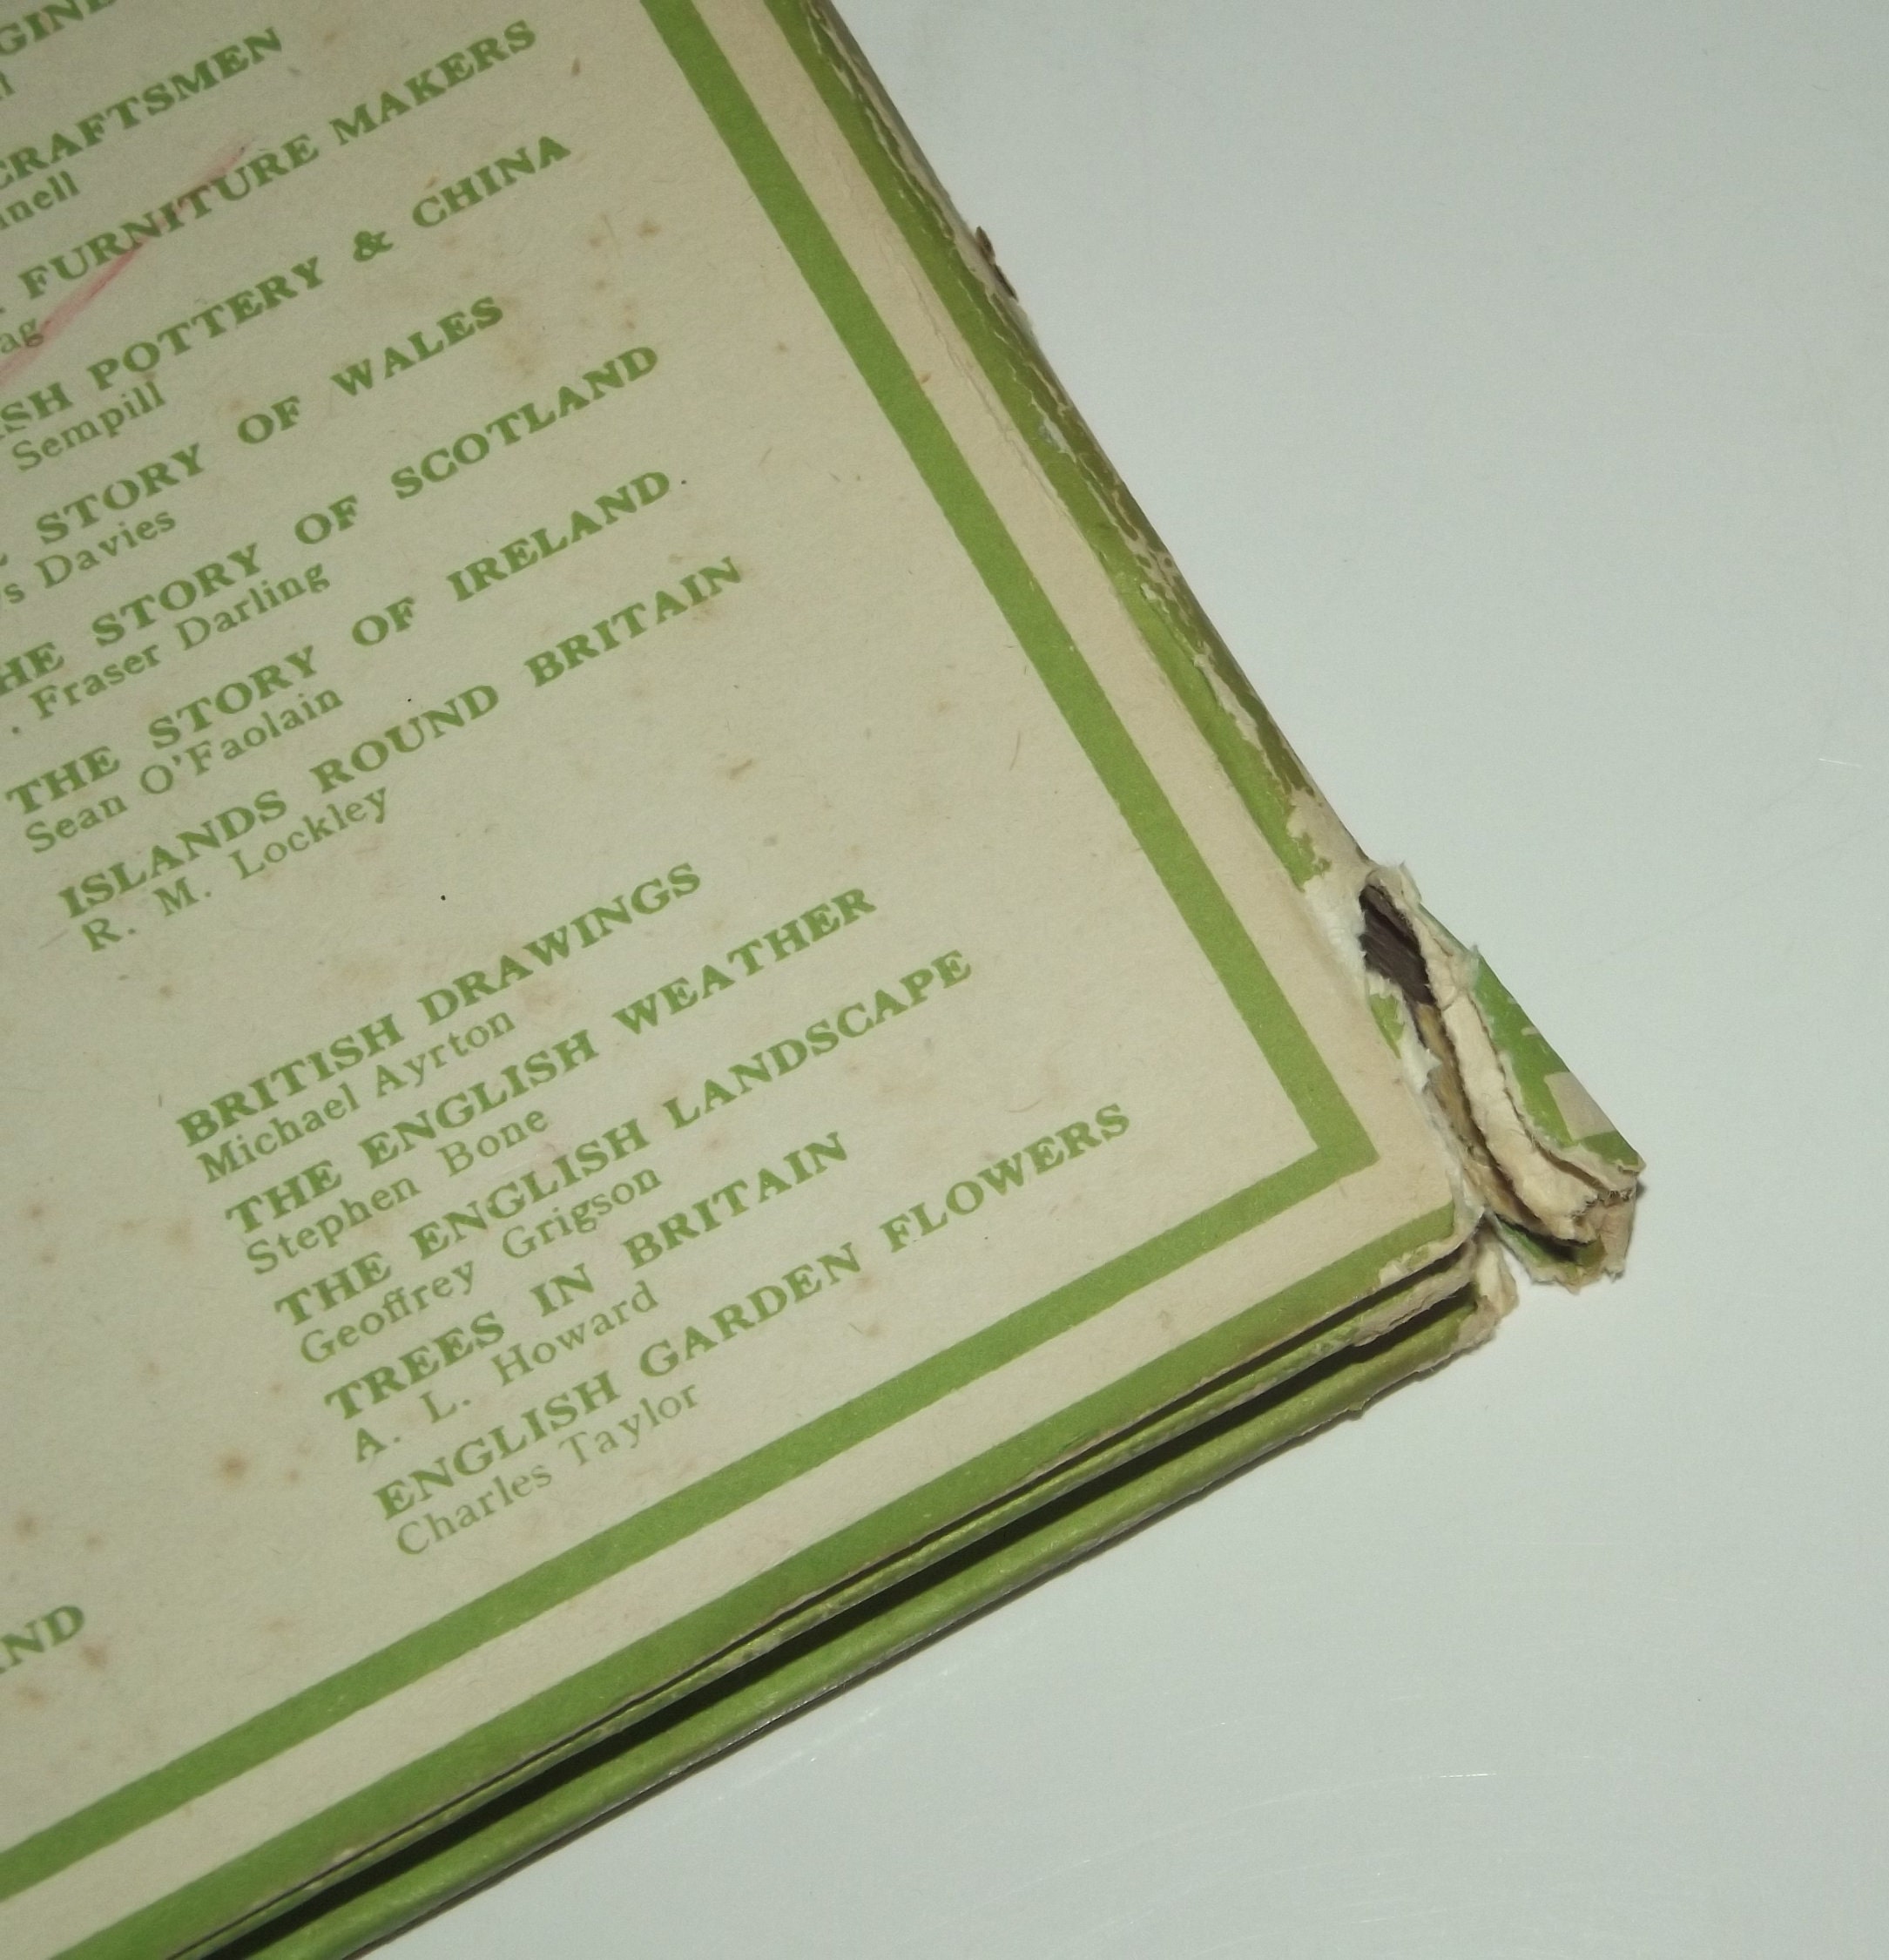 CRAFTSMEN
FURNITURE MAKERS
POTTERY & CHINA
Sempill
STORY OF WALES
Davies
STORY OF SCOTLAND
Fraser Darling
THE STORY OF IRELAND
Sean O'Faolain
ISLANDS ROUND BRITAIN
R. M. Lockley
BRITISH DRAWINGS
Michael Ayrton
THE ENGLISH WEATHER
Stephen Bone
THE ENGLISH LANDSCAPE
Geoffrey Grigson
TREES IN BRITAIN
A. L. Howard
ENGLISH GARDEN FLOWERS
Charles Taylor